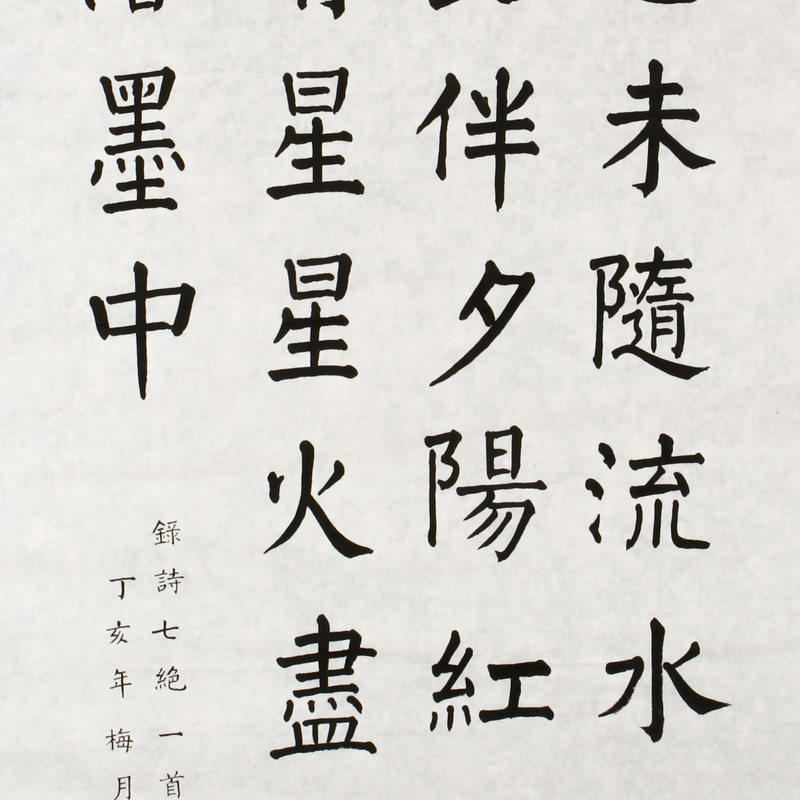 未隨流水
伴夕陽紅
星星火盡
墨中
錄詩七絕一首
丁亥年梅月